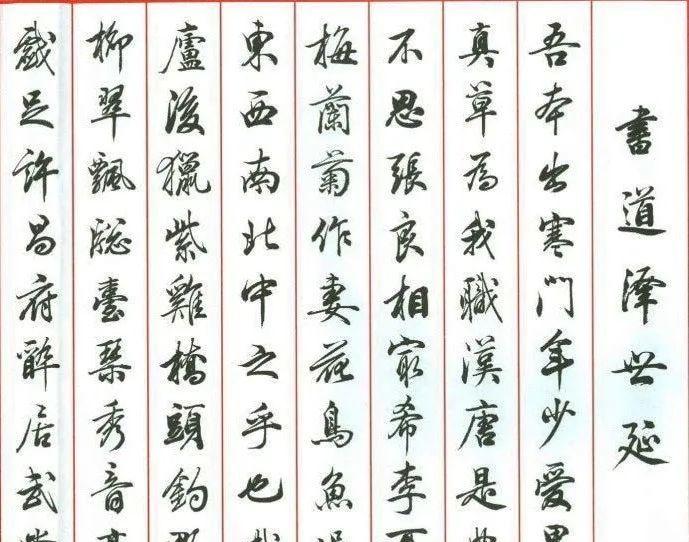 書道澤世延
吾本出寒門年少愛
真草為我職漢唐是
不思張良相寂希李
梅蘭菊作妻花鳥魚
東西南北中之乎也
廬後獵紫雞橋頭釣
柳翠飄聡臺琹秀音
戲足許昌府醉居武